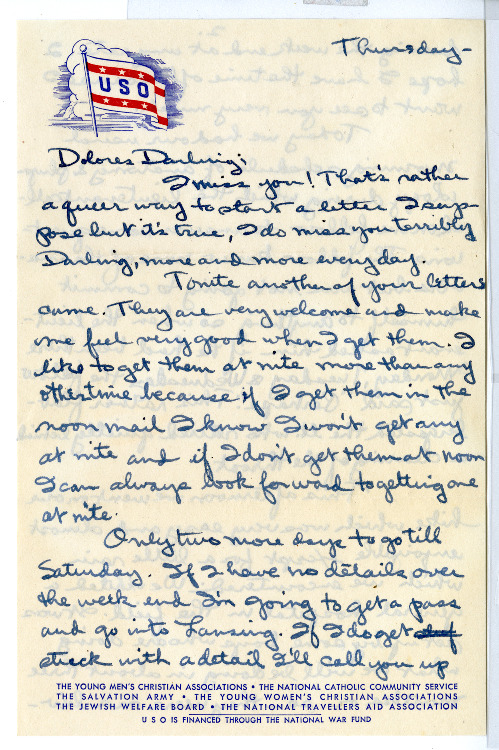 Thursday-
USO
Dolores Darling;
I miss you! That's rather
a queer way to start a letter I sup-
pose but it's true, I do miss you terribly
Darling, more and more every day.
Tonite another of your letters
came. They are very welcome and make
me feel very good when I get them. I
like to get them at nite more than any
other time because if I get them in the
noon mail I know I won't get any
at nite and if I don't get them at noon
I can always look forward to getting one
at nite.
Only two more days to go till
Saturday. If I have no details over
the week end I'm going to get a pass
and go into Lansing. If I do get
stuck with a detail I'll call you up
THE YOUNG MEN'S CHRISTIAN ASSOCIATIONS • THE NATIONAL CATHOLIC COMMUNITY SERVICE
THE SALVATION ARMY • THE YOUNG WOMEN'S CHRISTIAN ASSOCIATIONS
THE JEWISH WELFARE BOARD • THE NATIONAL TRAVELLERS AID ASSOCIATION
U S O IS FINANCED THROUGH THE NATIONAL WAR FUND